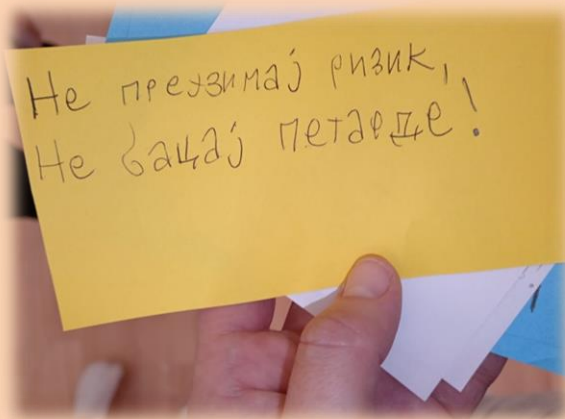 Не преузимај ризик,
Не бацај петарде!